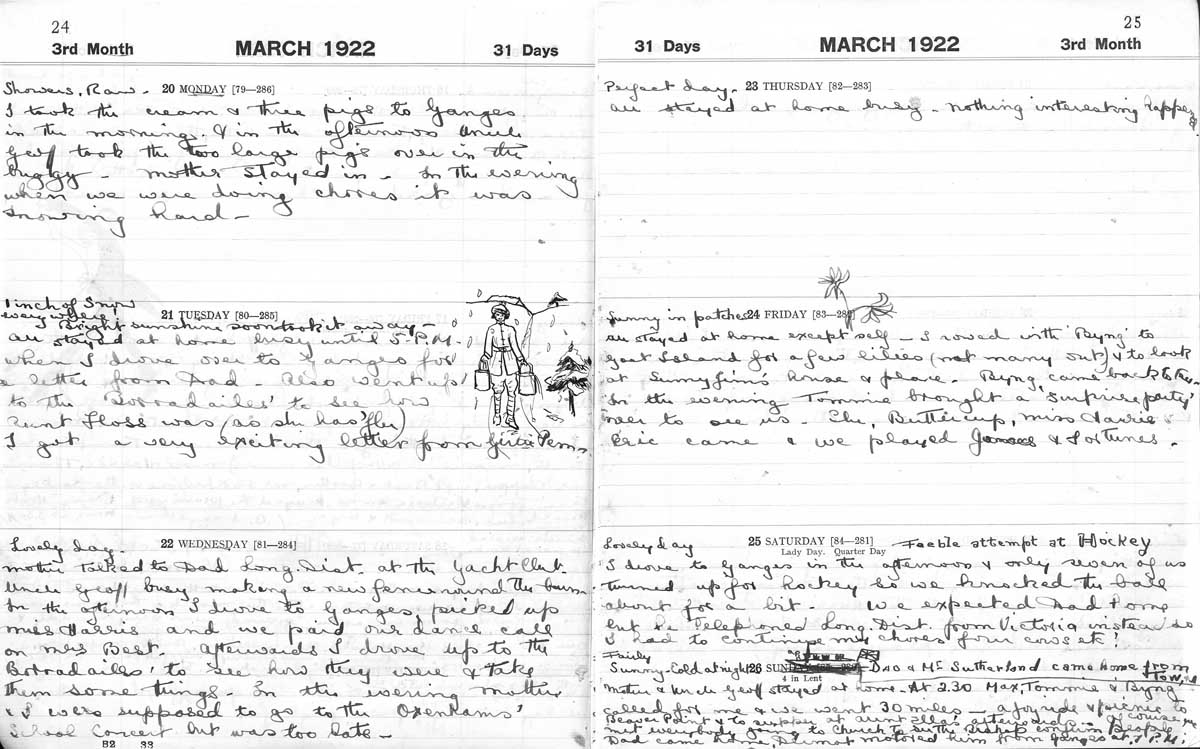 24
3rd Month MARCH 1922 31 Days
Showers, Raw. 20 MONDAY [79—286]
I took the cream & three pigs to Ganges
in the morning. & in the afternoon Uncle
Geoff took the two large pigs over in the
buggy - mother stayed in - In the evening
when we were doing chores it was
snowing hard -
1 inch of Snow
everywhere 21 TUESDAY [80—285]
Bright sunshine soon took it away -
all stayed at home busy until 5-P.M.
when I drove over to Ganges for
a letter from Dad - Also went up
to the Borradailes' to see how
Aunt Floss was (as she has 'flu)
I got a very exciting letter from
Lovely day. 22 WEDNESDAY [81—284]
mother talked to Dad Long Dist. at the Yacht Club.
Uncle Geoff busy making a new fence round the barn
In the afternoon I drove to Ganges, picked up
miss Harris and we paid our dance call
on mrs Best. Afterwards I drove up to the
Borradailes' to see how they were & take
them some things - In the evening mother
& I were supposed to go to the Oxenhams'
School Concert but was too late -
82 83
25
31 Days MARCH 1922 3rd Month
Perfect day. 23 THURSDAY [82—283]
all stayed at home busy - nothing interesting happen
Sunny in patches 24 FRIDAY [83—282]
all stayed at home except self - I rowed with 'Byng' to
Goat Island for a few lilies (not many out) & to look
at house & place - Byng came back to
In the evening Tommie brought a 'surprise party'
over to see us. She, Buttercup, miss Harris &
Eric came & we played & Fortunes.
Lovely day 25 SATURDAY [84—281] - Feeble attempt at Hockey
Lady Day. Quarter Day
I drove to Ganges in the afternoon & only seven of us
turned up for hockey so we knocked the ball
about for a bit - We expected Dad home
but he Telephoned Long Dist. from Victoria instead so
I had to continue my chores four cows etc!
Fairly
Sunny - Cold at night 26 SUNDAY - DAD & Mr Sutherland came home from
Town
4 in Lent
Mother & Uncle Geoff stayed at home - At 2.30 Max, Tommie & Byng
called for me & we went 30 miles - a joyride & picnic to
Beaver Point & to supper at aunt Ella's afterwards - of course we
met everybody going to Church to see the Bishop confirm people
Dad came home, motored him from Ganges at 7 P.M.